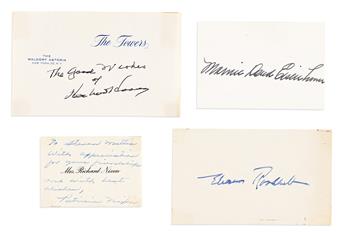 The Towers
THE
WALDORF ASTORIA
NEW YORK 22, N.Y.
The Good Wishes
of
Herbert Hoover
Mamie Doud Eisenhower
To Steven
With appreciation
for your friendship
and with best
wishes,
Mrs. Richard Nixon
Patricia Nixon
Eleanor Roosevelt